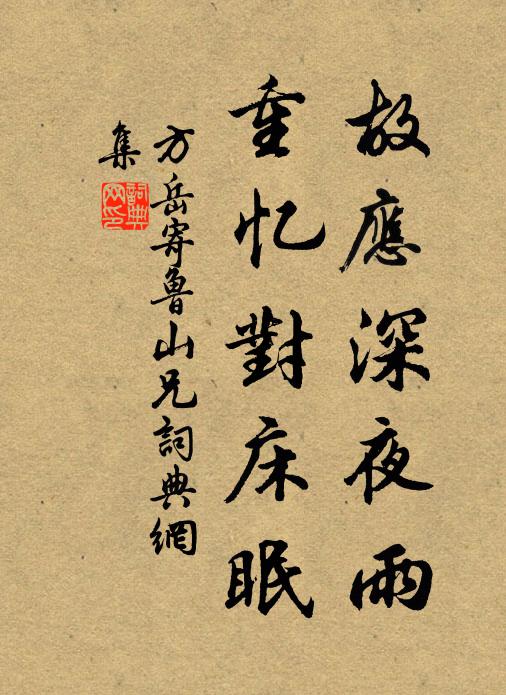 故應深夜雨
重忆對床眠
方岳寄魯山兄詞典網
集
詞典网印